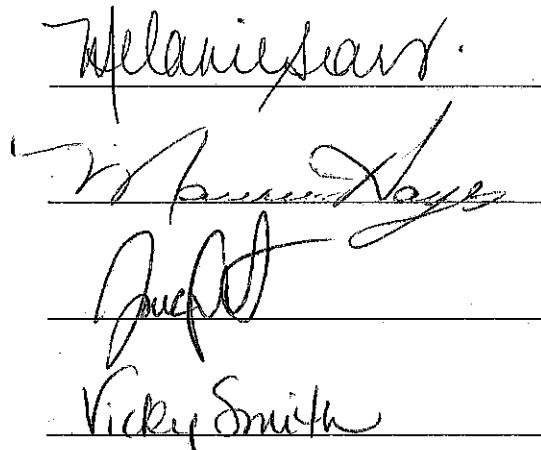 Melanie Sears.
Maureen Hayes
Vicky Smith